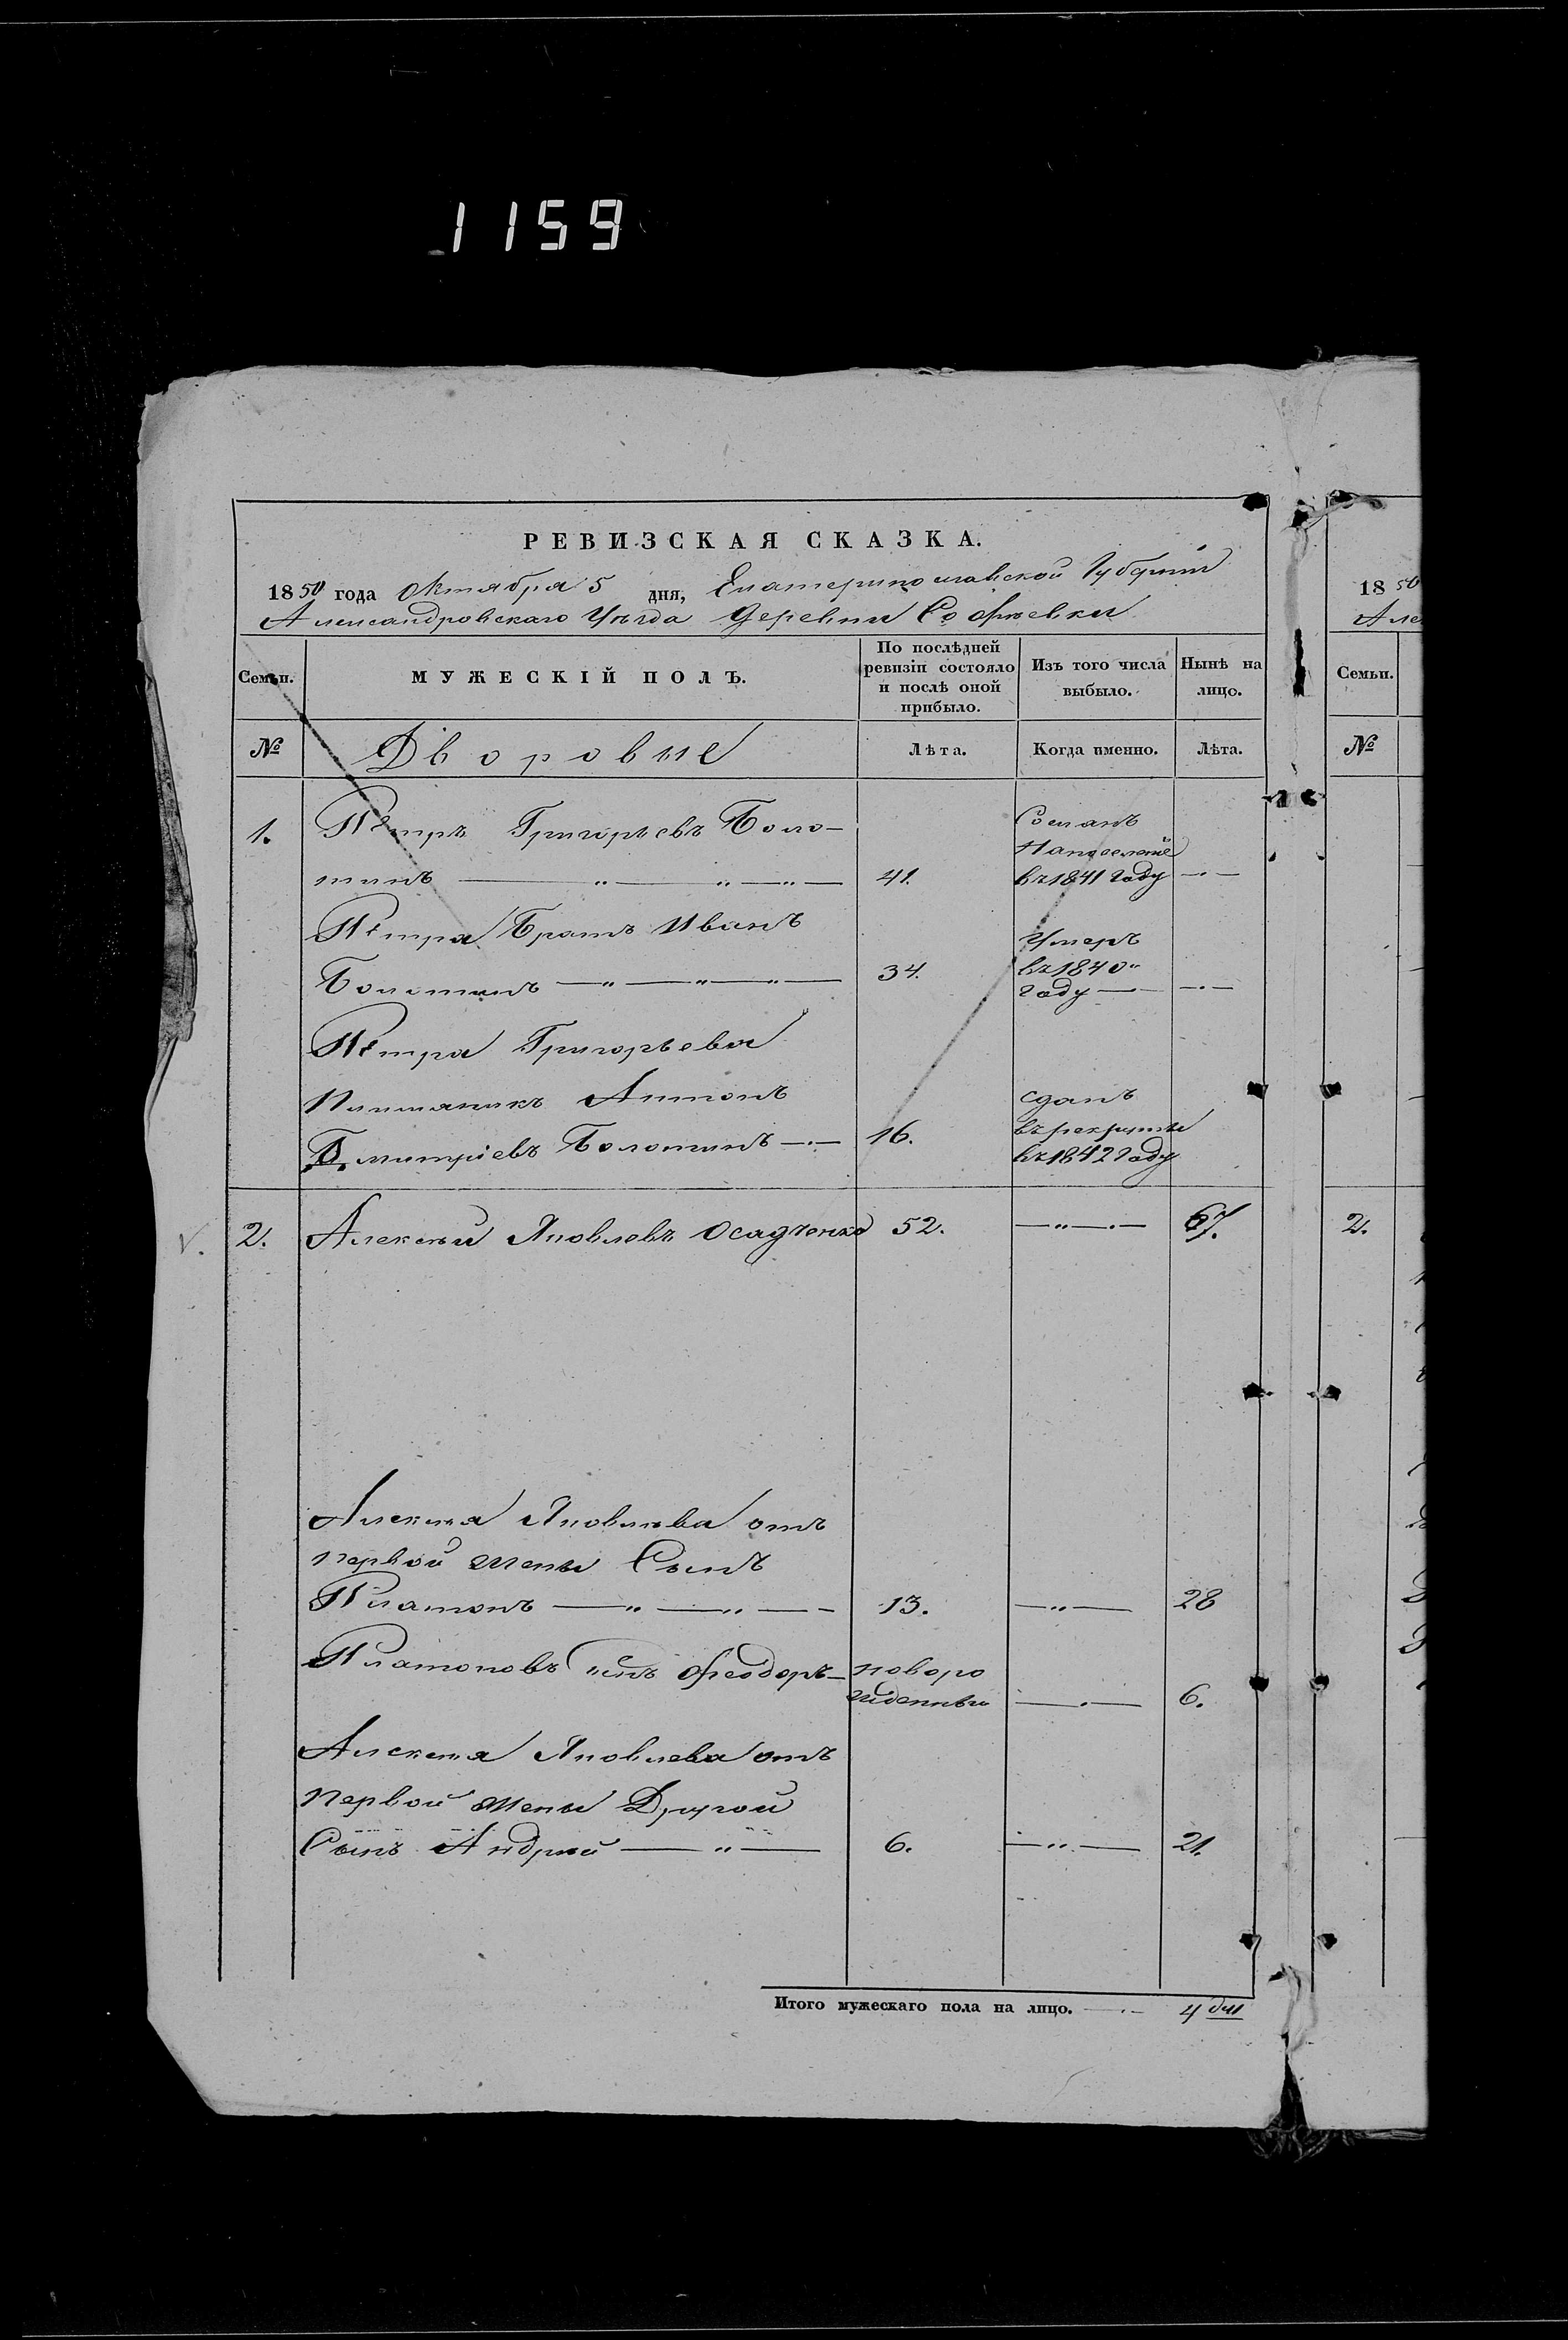 1159
РЕВИЗСКАЯ СКАЗКА.
1850 года Октября 5 дня, Екатеринославской Губерніи
Александровскаго Уѣзда Деревни Софіевки
Семьи.
МУЖЕСКІЙ ПОЛЪ.
По послѣдней
ревизіи состояло
и послѣ оной
прибыло.
Изъ того числа
выбыло.
Нынѣ на
лицо.
№
Дворовые
Лѣта.
Когда именно.
Лѣта.
1.
Петръ Григорьевъ Боло-
тинъ
41.
Сосланъ
на поселеніе
въ 1841 году
Петра Братъ Иванъ
Болотинъ
34.
Умеръ
въ 1840
году
Петра Григорьева
Племяникъ Антонъ
Дмитріевъ Болотинъ
16.
сданъ
въ рекруты
въ 1842 году
2.
Алексѣй Яковлевъ Осадченко
52.
67.
Алексѣя Яковлева отъ
первой жены Сынъ
Платонъ
13.
28
Платоновъ сынъ Феодоръ
новоро
жденный
6.
Алексѣя Яковлева отъ
первой жены Другой
Сынъ Андрей
6.
21.
Итого мужескаго пола на лицо. 4
1850
Але
Семьи.
№
2.